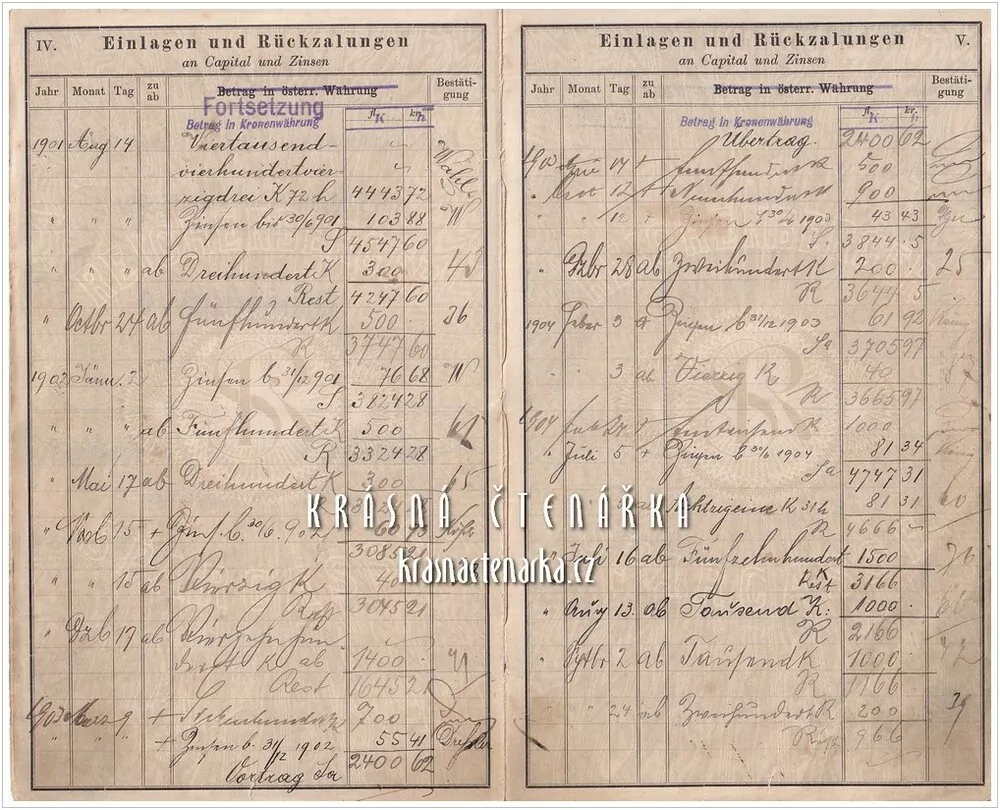 IV. Einlagen und Rückzalungen
an Capital und Zinsen
Jahr Monat Tag zu ab Betrag in österr. Währung Bestäti-gung
Fortsetzung
Betrag in Kronenwährung fl. K kr. h
1901 Aug 14 Viertausend-
vierhundertvier-
zigdrei K 72 h 4443 72
" " " Zinsen bis 30/6 901 103 88
S 4547 60
" " " ab Dreihundert K 300
Rest 4247 60
" Octbr 24 ab Fünfhundert K 500
R 3747 60
1902 Jänn. 2 Zinsen b 31/12 901 76 68
S 3824 28
" " " ab Fünfhundert K 500
R 3324 28
" Mai 17 ab Dreihundert K 300 65
15 + Zins. b. 30/6 902
3085 21
" " 15 ab Vierzig K
Rest 3045 21
" Dzb 17 ab Vierzehnhun-
dert K ab 1400
Rest 1645 21
1903 März 9 + Siebenhundert 700
+ Zinsen b. 31/12 1902 55 41
Vortrag Sa 2400 62
Einlagen und Rückzalungen V.
an Capital und Zinsen
Jahr Monat Tag zu ab Betrag in österr. Währung Bestäti-gung
Betrag in Kronenwährung fl. K kr. h
Übertrag 2400 62
Fünfhundert K 500
12 + Neunhundert K 900
" " 12 + Zinsen b 30/6 1903 43 43
S. 3844 5
" 28 ab Zweihundert K 200 25
R 3644 5
1904 Feber 3 + Zinsen b 31/12 1903 61 92
Sa 3705 97
" 3 ab Vierzig K 40
R 3665 97
1904 + Eintausend K 1000
" Juli 5 + Zinsen b 30/6 1904 81 34
Sa 4747 31
ab Achtzigeine K 31 h 81 31
R 4666
" Juli 16 ab Fünfzehnhundert 1500
Rest 3166
" Aug 13. ab Tausend K: 1000
R 2166
" 2 ab Tausend K 1000
R 1166
" " 24 ab Zweihundert K 200 39
Rest 966
KRÁSNÁ ČTENÁŘKA
krasnactenarka.cz